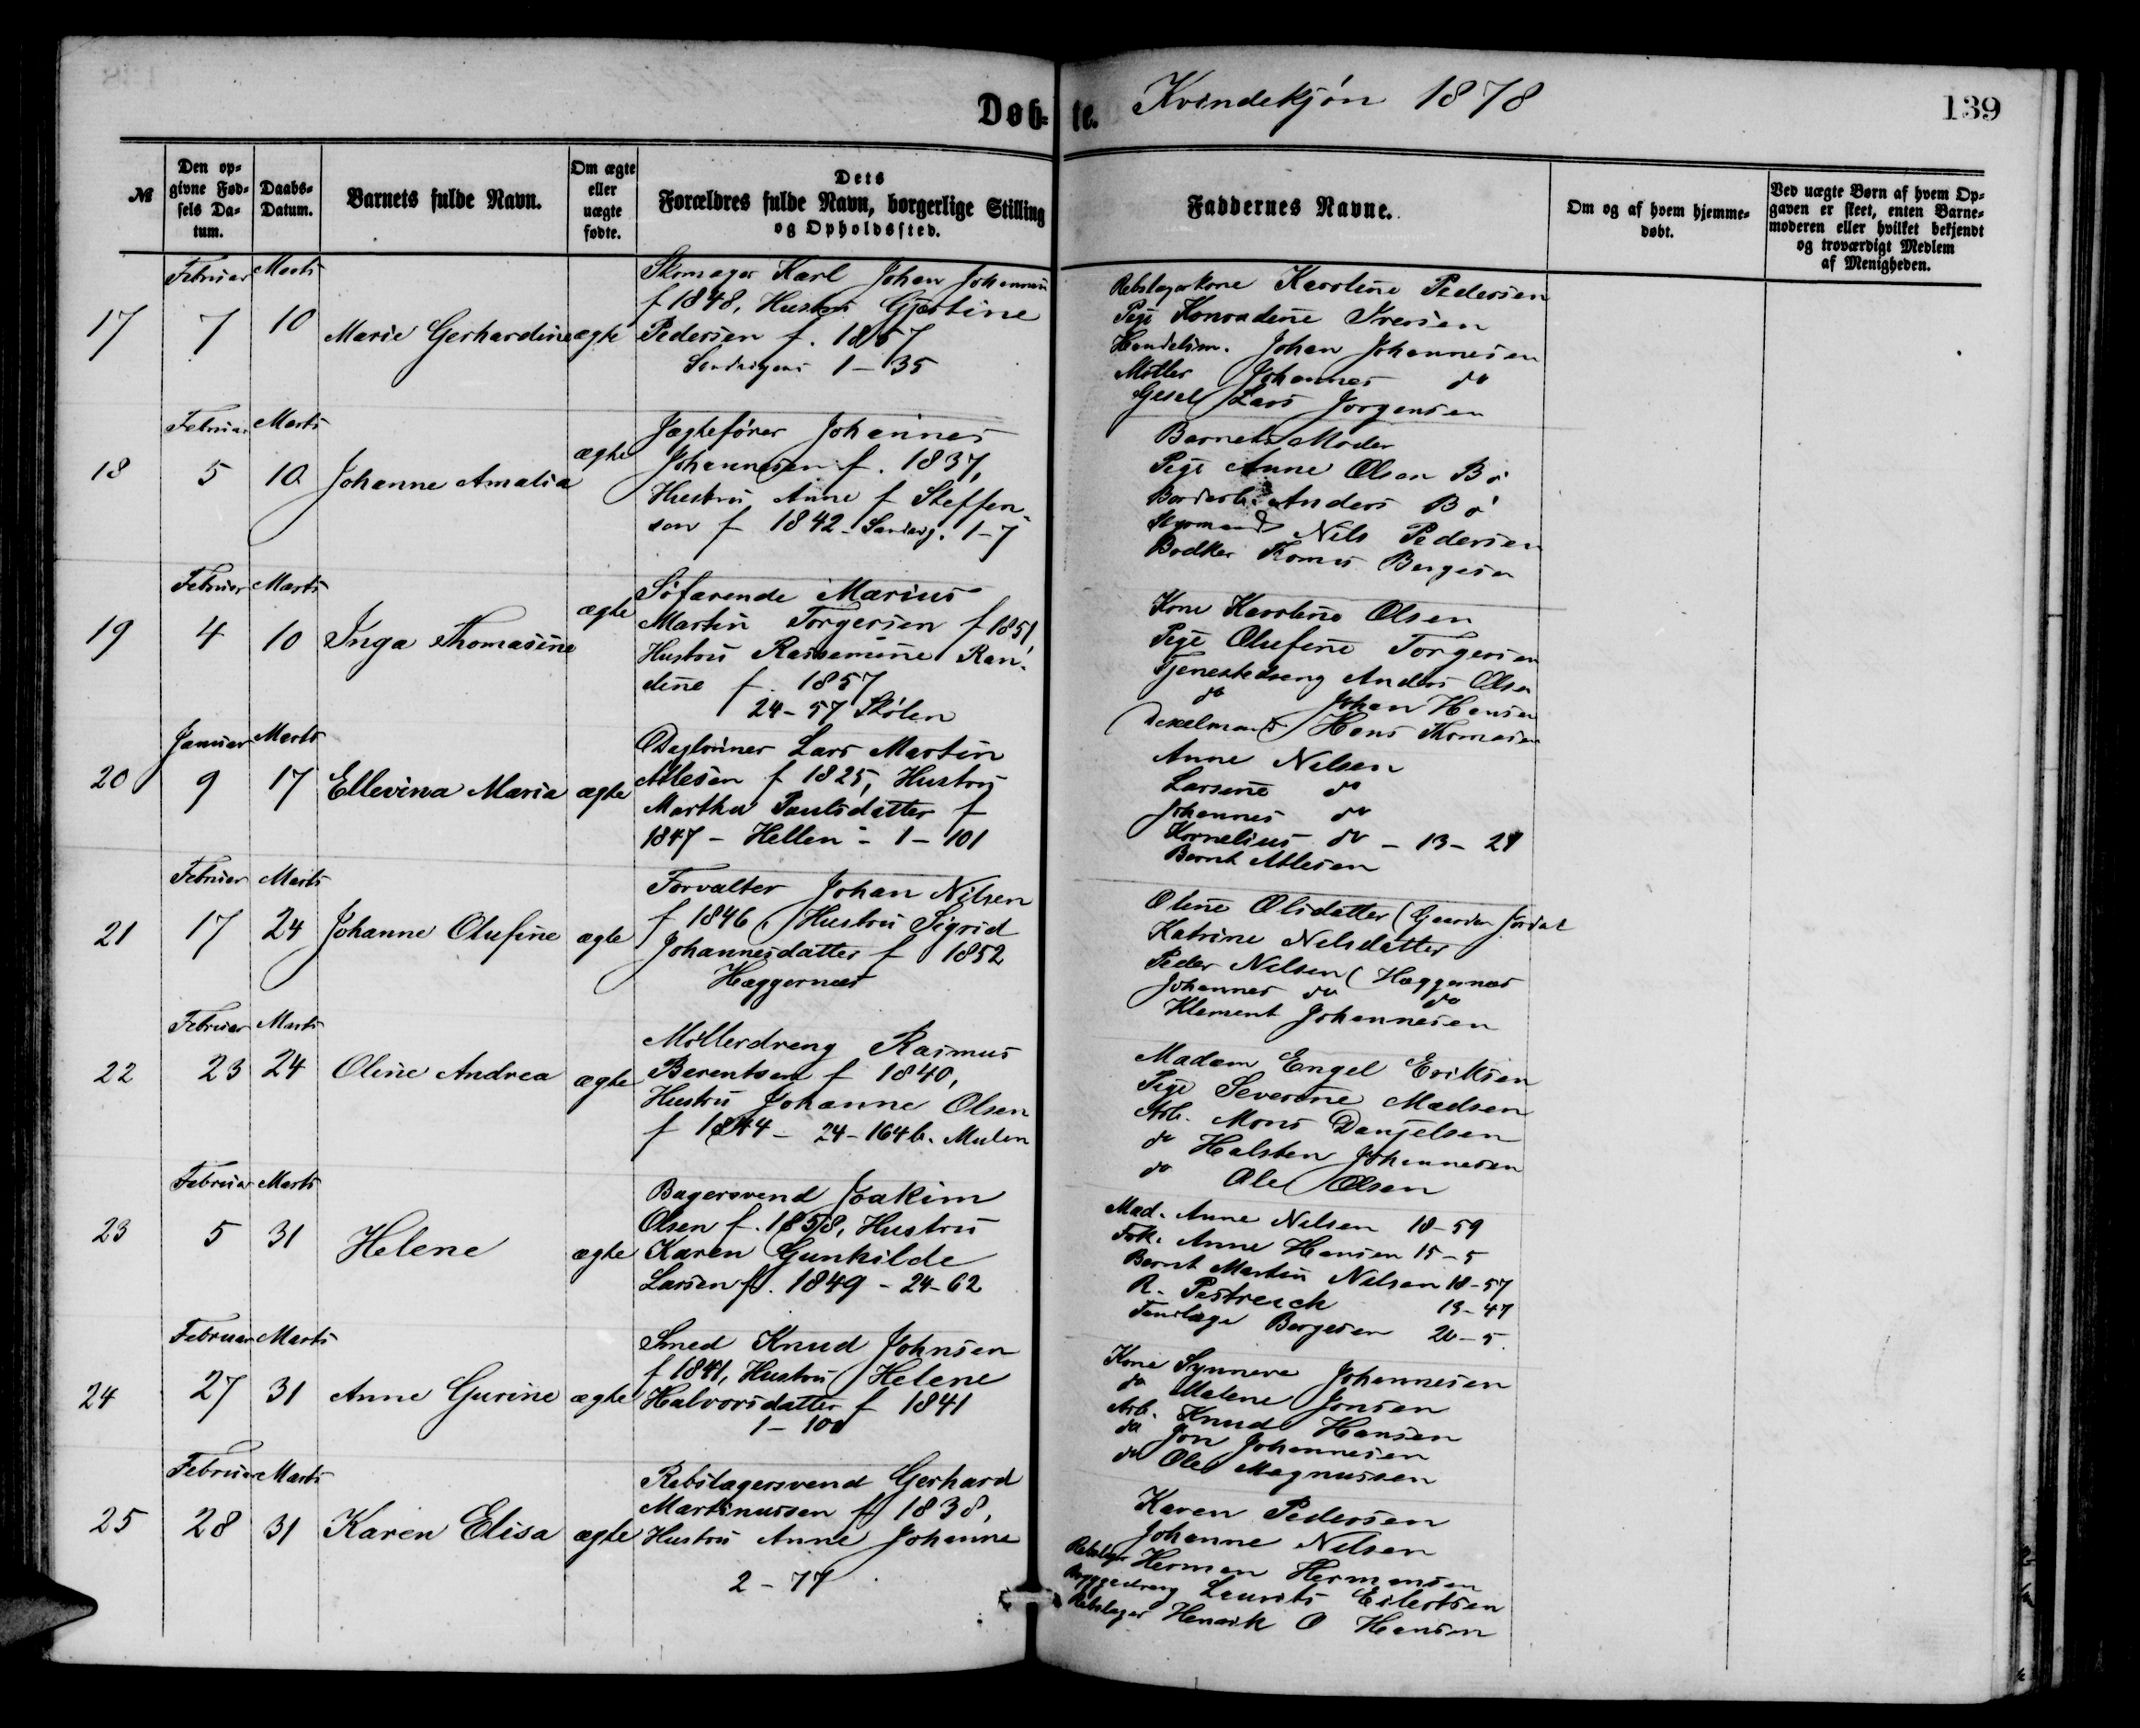 Døb-te. Kvindekjön 1878
139
№
Den op-
givne Fød-
sels Da-
tum.
Daabs-
Datum.
Barnets fulde Navn.
Om ægte
eller
uægte
fødte.
Dets
Forældres fulde Navn, borgerlige Stilling
og Opholdssted.
Faddernes Navne.
Om og af hvem hjemme-
døbt.
Ved uægte Børn af hvem Op-
gaven er skeet, enten Barne-
moderen eller hvilket bekjendt
og troværdigt Medlem
af Menigheden.
17
Februar
7
Marts
10
Marie Gerhardine
ægte
Skomager Karl Johan Johannesen
f 1848, Hustru Gjertine
Pedersen f. 1857
1-35
Rebslagerkone Karoline Pedersen
Pige Konradine Iversen
Johan Johannesen
Møller Johannes do
Gesel Lars Jorgensen
18
Februar
5
Marts
10
Johanne Amalia
ægte
Jægtefører Johannes
Johannesen f. 1837,
Hustru Anne f Steffen-
sen f 1842 - Sandvig. 1-7
Barnets Moder
Pige Anne Olsen Bö
Anders Bö
Styrmand Nils Pedersen
Bødker Tomas Bergesen
19
Februar
4
Marts
10
Inga Thomasine
ægte
Söfarende Marius
Martin Torgersen f 1851
Hustru Rassemine Ran-
dine f. 1857
24-57 Skölen
Kone Karoline Olsen
Pige Olufine Torgersen
Tjenestedreng Anders Olsen
do Johan Hansen
Hans Thomasen
20
Januar
9
Marts
17
Ellevina Maria
ægte
Daglönner Lars Martin
Atlesen f 1825, Hustru
Martha Paulsdatter f
1847 - Hellen - 1-101
Anne Nilsen
Larsine do
Johannes do
Kornelius do - 13-
Bernt Atlesen
21
Februar
17
Marts
24
Johanne Olufine
ægte
Forvalter Johan Nilsen
f 1846, Hustru Sigrid
Johannesdatter f 1852
Hæggernæs
Oline Olsdatter (Gaarden
Katrine Nilsdatter
Peder Nilsen (Hæggernæs
Johannes do do
Klement Johannesen
22
Februar
23
Marts
24
Oline Andrea
ægte
Møllerdreng Rasmus
Berentsen f 1840,
Hustru Johanne Olsen
f 1844 - 24-164b. Mulen
Madam Engel Eriksen
Pige Severine Madsen
Arb. Mons Danjelsen
do Halsten Johannesen
do Ole Olsen
23
Februar
5
Marts
31
Helene
ægte
Bagersvend Joakim
Olsen f. 1858, Hustru
Karen Gunhilde
Larsen f. 1849 - 24-62
Mad. Anne Nilsen 18-59
Frk. Anne Hansen 15-5
Bernt Martin Nilsen 18-57
R. Pestreich 13-47
Bergesen 20-5.
24
Februar
27
Marts
31
Anne Gurine
ægte
Smed Knud Johnsen
f 1841, Hustru Helene
Halvorsdatter f 1841
1-100
Kone Synneve Johannesen
do Malene Jonsen
Arb. Knud Hansen
do Jon Johannesen
do Ole Magnussen
25
Februar
28
Marts
31
Karen Elisa
ægte
Rebslagersvend Gerhard
Martinussen f 1838,
Hustru Anne Johanne
2-77
Karen Pedersen
Johanne Nilsen
Rebslager Herman Hermansen
Bryggedreng Laurits Eilertsen
Rebslager Henrik O Hansen